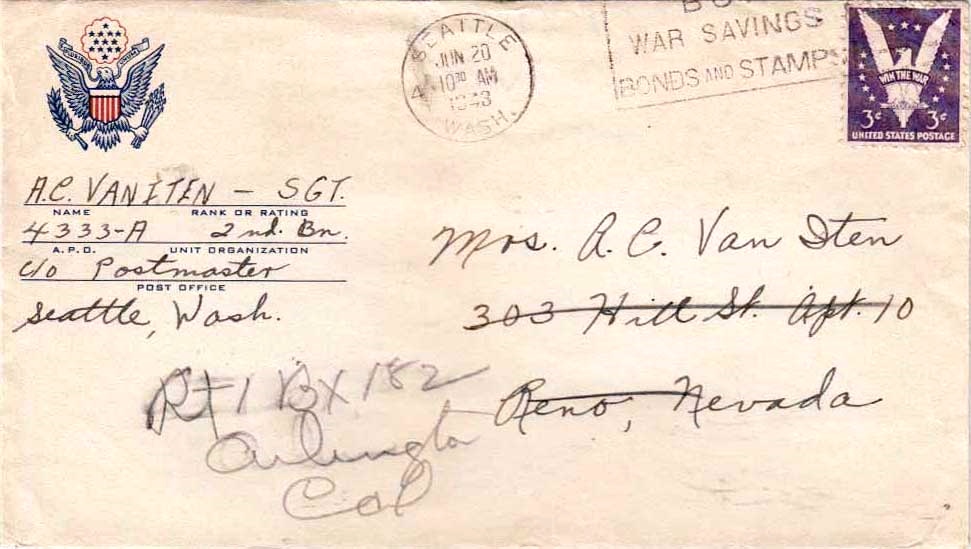 SEATTLE
JUN 20
10 30 AM
1943
WASH.
WAR SAVINGS
BONDS AND STAMPS
WIN THE WAR
3¢ 3¢
UNITED STATES POSTAGE
A.C. VAN ITEN – SGT.
NAME RANK OR RATING
4333-A 2nd. Bn.
A.P.O. UNIT ORGANIZATION
c/o Postmaster
POST OFFICE
Seattle, Wash.
Mrs. A.C. Van Iten
303 Hill St. Apt. 10
Reno, Nevada
Rt 1 Bx 182
Arlington
Cal